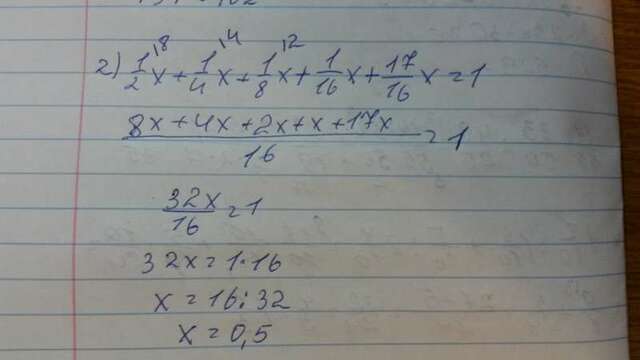 2) 1/2 \8 x + 1/4 \4 x + 1/8 \2 x + 1/16 x + 17/16 x = 1
8x + 4x + 2x + x + 17x / 16 = 1
32x / 16 = 1
32x = 1 · 16
x = 16 : 32
x = 0,5